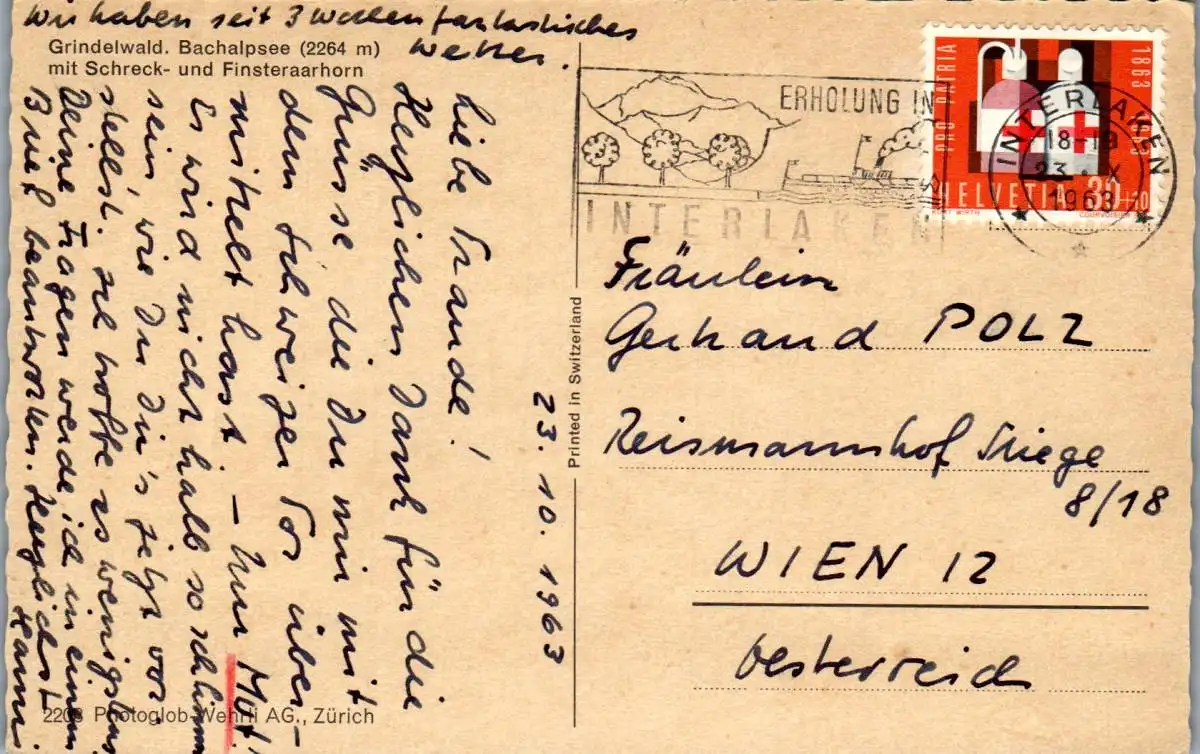 Wir haben seit 3 Wochen fantastisches
Wetter.
Grindelwald. Bachalpsee (2264 m)
mit Schreck- und Finsteraarhorn
Liebe Traude!
Herzlichen Dank für die
Grüsse die Du mir mit
dem Schweizer Pos über-
mittelt hast. – Nur Mut!
Es wird nicht halb so schlimm
sein wie Du Dir's jetzt vor-
stellst. Ich hoffe es wenigstens
Deine Fragen werde ich in einem
Brief beantworten. Herzlichst
Hanni
23. 10. 1963
2203 Photoglob-Wehrli AG., Zürich
Printed in Switzerland
ERHOLUNG IN
INTERLAKEN
INTERLAKEN
18-19
23. X
1963
PRO PATRIA
1863
1963
HELVETIA 30+10
KURT WIRTH
COURVOISIER
Fräulein
Gertraud POLZ
Reismannhof Stiege
8/18
WIEN 12
Oesterreich